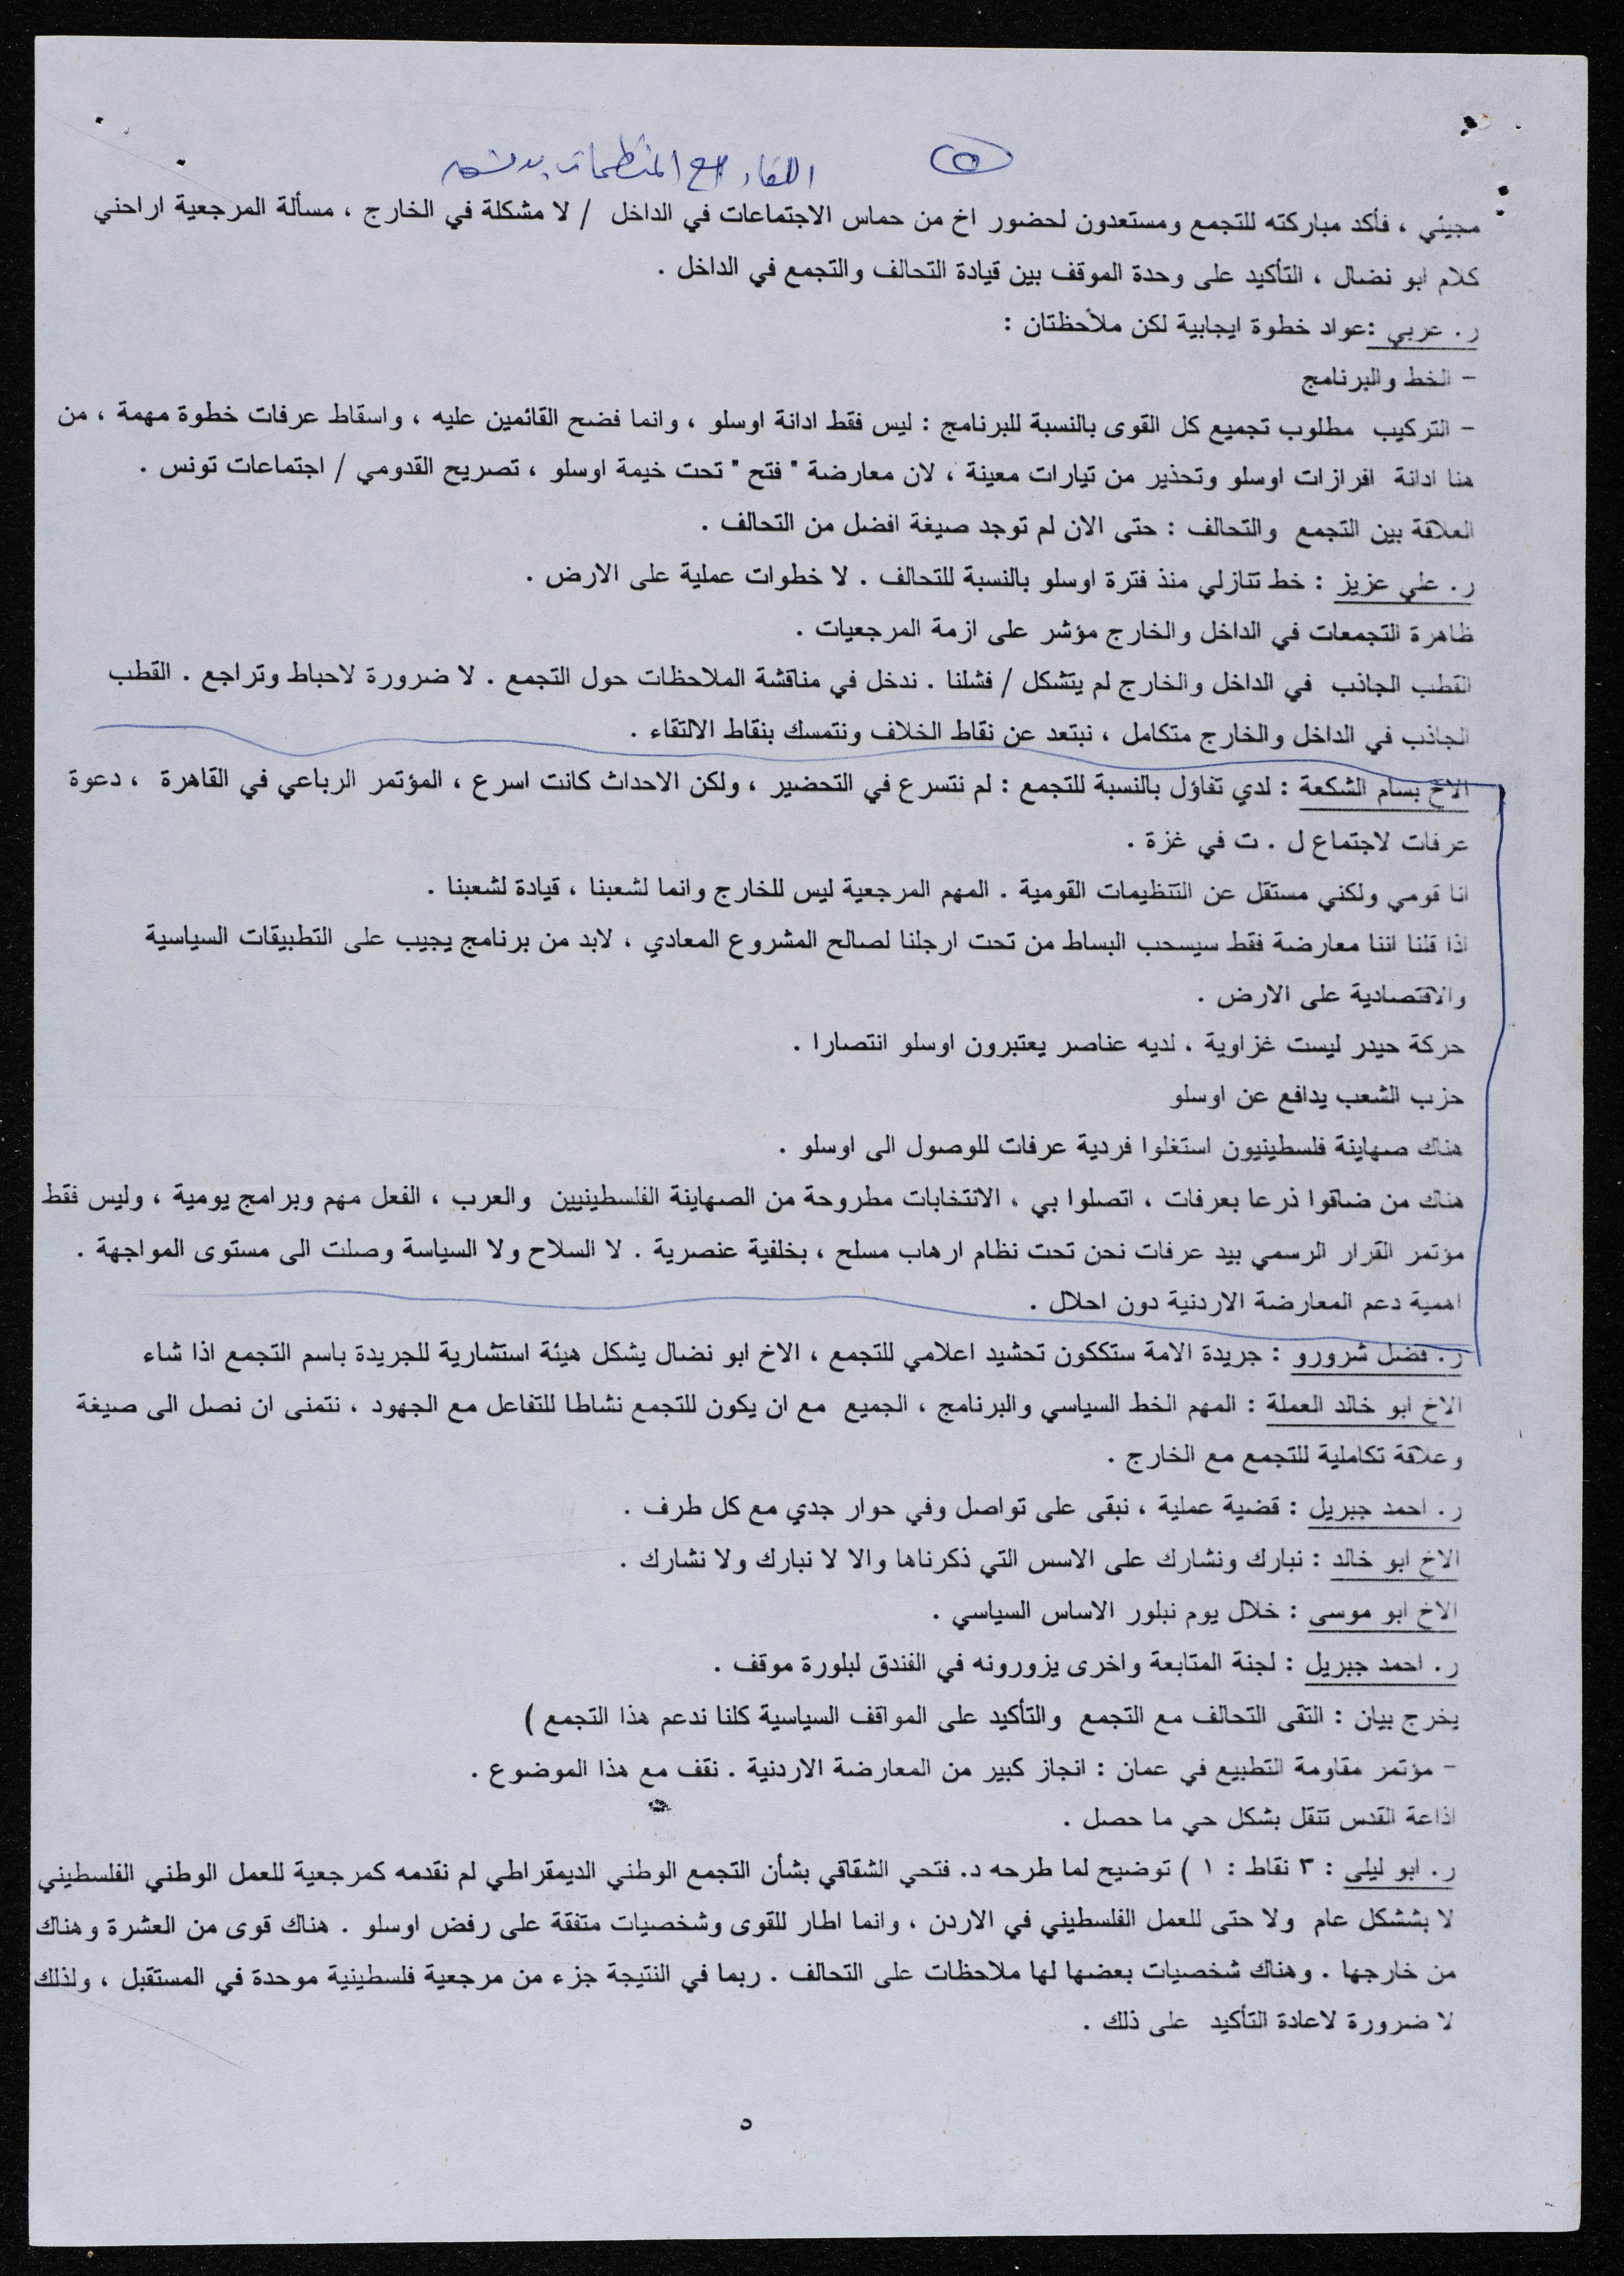 ٥
اللقاء مع المنظمات بدمشق
مجيئي ، فأكد مباركته للتجمع ومستعدون لحضور اخ من حماس الاجتماعات في الداخل / لا مشكلة في الخارج ، مسألة المرجعية اراحني
كلام ابو نضال ، التأكيد على وحدة الموقف بين قيادة التحالف والتجمع في الداخل .
ر. عربي :عواد خطوة ايجابية لكن ملاحظتان :
- الخط والبرنامج
- التركيب مطلوب تجميع كل القوى بالنسبة للبرنامج : ليس فقط ادانة اوسلو ، وانما فضح القائمين عليه ، واسقاط عرفات خطوة مهمة ، من
هنا ادانة افرازات اوسلو وتحذير من تيارات معينة ، لان معارضة " فتح " تحت خيمة اوسلو ، تصريح القدومي / اجتماعات تونس .
العلاقة بين التجمع والتحالف : حتى الان لم توجد صيغة افضل من التحالف .
ر. علي عزيز : خط تنازلي منذ فترة اوسلو بالنسبة للتحالف . لا خطوات عملية على الارض .
ظاهرة التجمعات في الداخل والخارج مؤشر على ازمة المرجعيات .
القطب الجاذب في الداخل والخارج لم يتشكل / فشلنا . ندخل في مناقشة الملاحظات حول التجمع . لا ضرورة لاحباط وتراجع . القطب
الجاذب في الداخل والخارج متكامل ، نبتعد عن نقاط الخلاف ونتمسك بنقاط الالتقاء .
الاخ بسام الشكعة : لدي تفاؤل بالنسبة للتجمع : لم نتسرع في التحضير ، ولكن الاحداث كانت اسرع ، المؤتمر الرباعي في القاهرة ، دعوة
عرفات لاجتماع ل . ت في غزة .
انا قومي ولكني مستقل عن التنظيمات القومية . المهم المرجعية ليس للخارج وانما لشعبنا ، قيادة لشعبنا .
اذا قلنا اننا معارضة فقط سيسحب البساط من تحت ارجلنا لصالح المشروع المعادي ، لابد من برنامج يجيب على التطبيقات السياسية
والاقتصادية على الارض .
حركة حيدر ليست غزاوية ، لديه عناصر يعتبرون اوسلو انتصارا .
حزب الشعب يدافع عن اوسلو
هناك صهاينة فلسطينيون استغلوا فردية عرفات للوصول الى اوسلو .
هناك من ضاقوا ذرعا بعرفات ، اتصلوا بي ، الانتخابات مطروحة من الصهاينة الفلسطينيين والعرب ، الفعل مهم وبرامج يومية ، وليس فقط
مؤتمر القرار الرسمي بيد عرفات نحن تحت نظام ارهاب مسلح ، بخلفية عنصرية . لا السلاح ولا السياسة وصلت الى مستوى المواجهة .
اهمية دعم المعارضة الاردنية دون احلال .
ر. فضل شرورو : جريدة الامة ستككون تحشيد اعلامي للتجمع ، الاخ ابو نضال يشكل هيئة استشارية للجريدة باسم التجمع اذا شاء
الاخ ابو خالد العملة : المهم الخط السياسي والبرنامج ، الجميع مع ان يكون للتجمع نشاطا للتفاعل مع الجهود ، نتمنى ان نصل الى صيغة
وعلاقة تكاملية للتجمع مع الخارج .
ر. احمد جبريل : قضية عملية ، نبقى على تواصل وفي حوار جدي مع كل طرف .
الاخ ابو خالد : نبارك ونشارك على الاسس التي ذكرناها والا لا نبارك ولا نشارك .
الاخ ابو موسى : خلال يوم نبلور الاساس السياسي .
ر. احمد جبريل : لجنة المتابعة واخرى يزورونه في الفندق لبلورة موقف .
يخرج بيان : التقى التحالف مع التجمع والتأكيد على المواقف السياسية كلنا ندعم هذا التجمع )
- مؤتمر مقاومة التطبيع في عمان : انجاز كبير من المعارضة الاردنية . نقف مع هذا الموضوع .
اذاعة القدس تنقل بشكل حي ما حصل .
ر. ابو ليلى : ٣ نقاط : ١ ) توضيح لما طرحه د. فتحي الشقاقي بشأن التجمع الوطني الديمقراطي لم نقدمه كمرجعية للعمل الوطني الفلسطيني
لا بششكل عام ولا حتى للعمل الفلسطيني في الاردن ، وانما اطار للقوى وشخصيات متفقة على رفض اوسلو . هناك قوى من العشرة وهناك
من خارجها . وهناك شخصيات بعضها لها ملاحظات على التحالف . ربما في النتيجة جزء من مرجعية فلسطينية موحدة في المستقبل ، ولذلك
لا ضرورة لاعادة التأكيد على ذلك .
٥